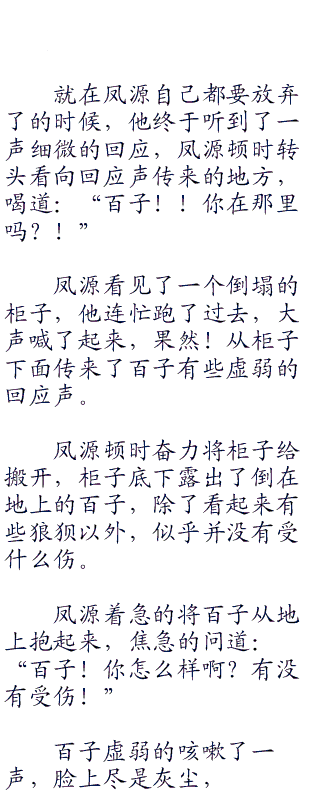 就在凤源自己都要放弃
了的时候，他终于听到了一
声细微的回应，凤源顿时转
头看向回应声传来的地方，
喝道：“百子！！你在那里
吗？！”
凤源看见了一个倒塌的
柜子，他连忙跑了过去，大
声喊了起来，果然！从柜子
下面传来了百子有些虚弱的
回应声。
凤源顿时奋力将柜子给
搬开，柜子底下露出了倒在
地上的百子，除了看起来有
些狼狈以外，似乎并没有受
什么伤。
凤源着急的将百子从地
上抱起来，焦急的问道：
“百子！你怎么样啊？有没
有受伤！”
百子虚弱的咳嗽了一
声，脸上尽是灰尘，